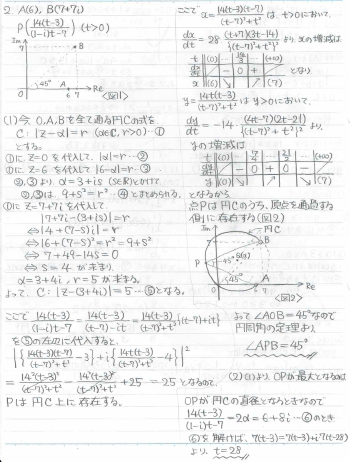 2. A(6), B(7+7i)
P(14(t-3)/((1-i)t-7)) (t>0)
Im
7
B
45°
A
0
6 7
Re
<図1>
(1) 今 O,A,Bを全て通る円Cの式を
C: |z-α|=r (α∈C, r>0) …①
とする。
①に z=0 を代入して |α|=r …②
①に z=6 を代入して |6-α|=r …③
②,③より α=3+is (s∈R)とかけて
②,③は 9+s²=r² …④ とまとめられる。
①に z=7+7i を代入して
|7+7i-(3+is)|=r
⇔ |4+(7-s)i|=r
⇔ 16+(7-s)²=r²=9+s²
⇔ 7+49-14s=0
⇔ s=4 が求まり
α=3+4i, r=5 が求まる。
よって、C: |z-(3+4i)|=5 …⑤となる。
ここで 14(t-3)/((1-i)t-7) = 14(t-3)/((t-7)-it) = 14(t-3)/((t-7)²+t²) {(t-7)+it}
を⑤の左辺に代入すると、
|{14(t-3)(t-7)/((t-7)²+t²) -3}+i{14t(t-3)/((t-7)²+t²) -4}|²
= 14²(t-3)²/((t-7)²+t²) - 14²(t-3)²/((t-7)²+t²) +25 = 25 となるので、
Pは円C上に存在する。
ここで x=14(t-3)(t-7)/((t-7)²+t²) は t>0において、
dx/dt = 28·(t+7)(3t-14)/{(t-7)²+t²}² より xの増減は
t (0) … 14/3 … (+∞)
dx/dt − 0 +
x (6) ↘ ↗ (7)
となり
y=14t(t-3)/((t-7)²+t²) は y>0において、
dy/dt = -14·(4t-7)(2t-21)/{(t-7)²+t²}² より、
yの増減は
t (0) … 7/4 … 21/2 … (+∞)
dy/dt − 0 + 0 −
y (0) ↘ ↗ ↘ (7)
となるから、
点Pは円Cのうち、原点を通過する
側に存在する(図2)
Im
円C
B
P
45°
45°
A
Re
<図2>
よって ∠AOB=45°なので
円周角の定理より
∠APB=45°
(2) (1)より、OPが最大となるのは
OPが円Cの直径となるときなので
14(t-3)/((1-i)t-7) = 2α = 6+8i …⑥のとき
⑥を解けば、7(t-3)=7(t-3)+i7(t-28)
より、t=28